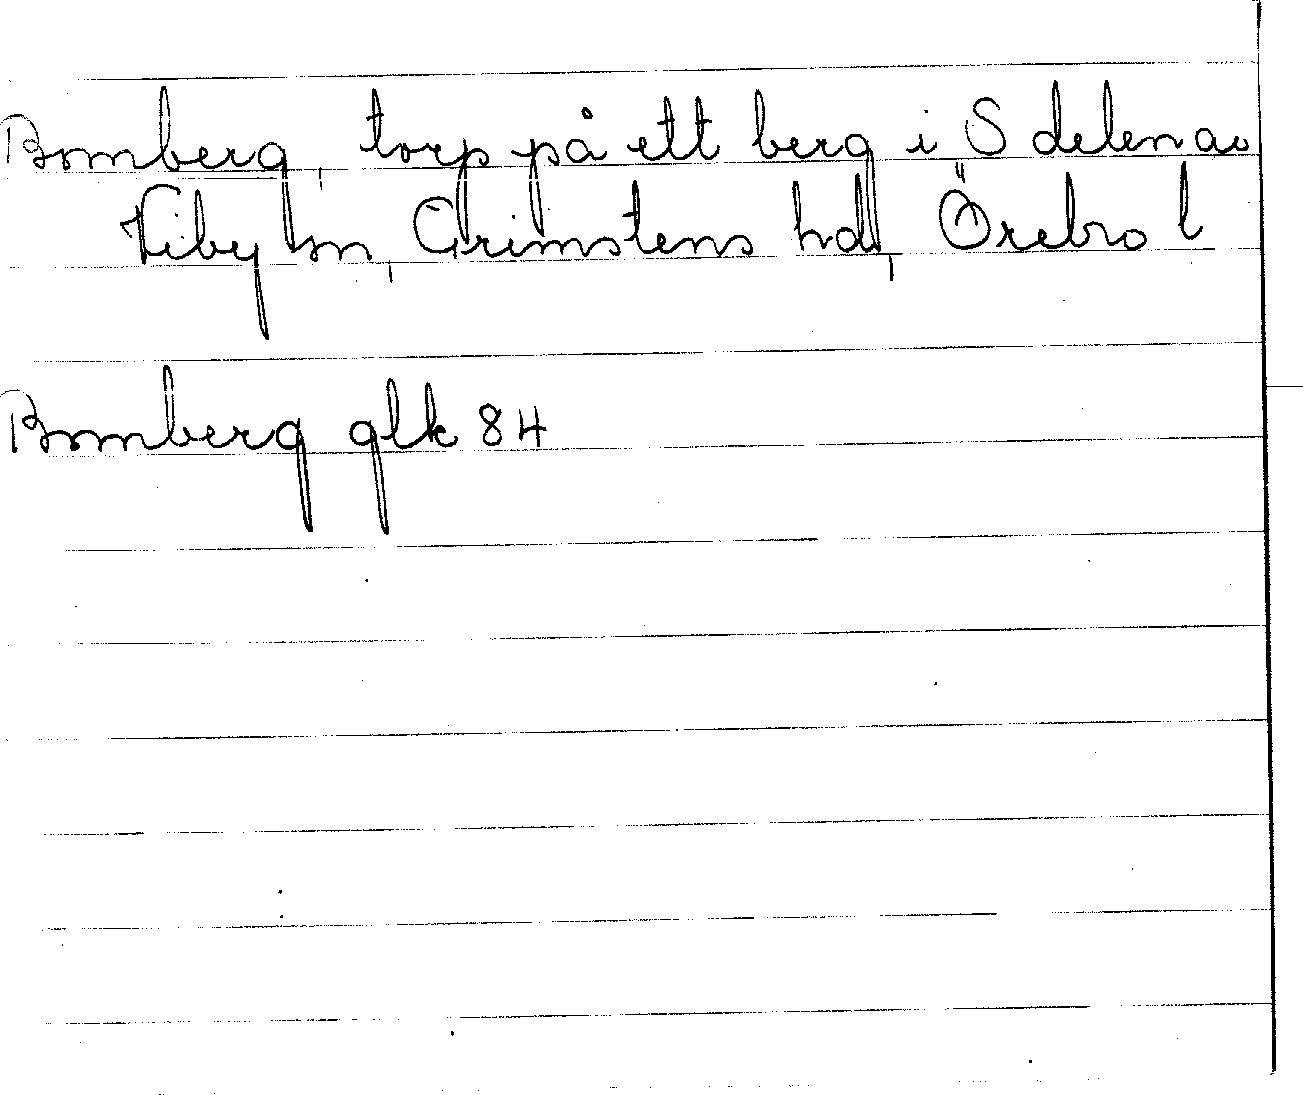 Bomberg, torp på ett berg i S delen av
Viby sn, Grimstens hd, Örebro l
Bomberg glk 84